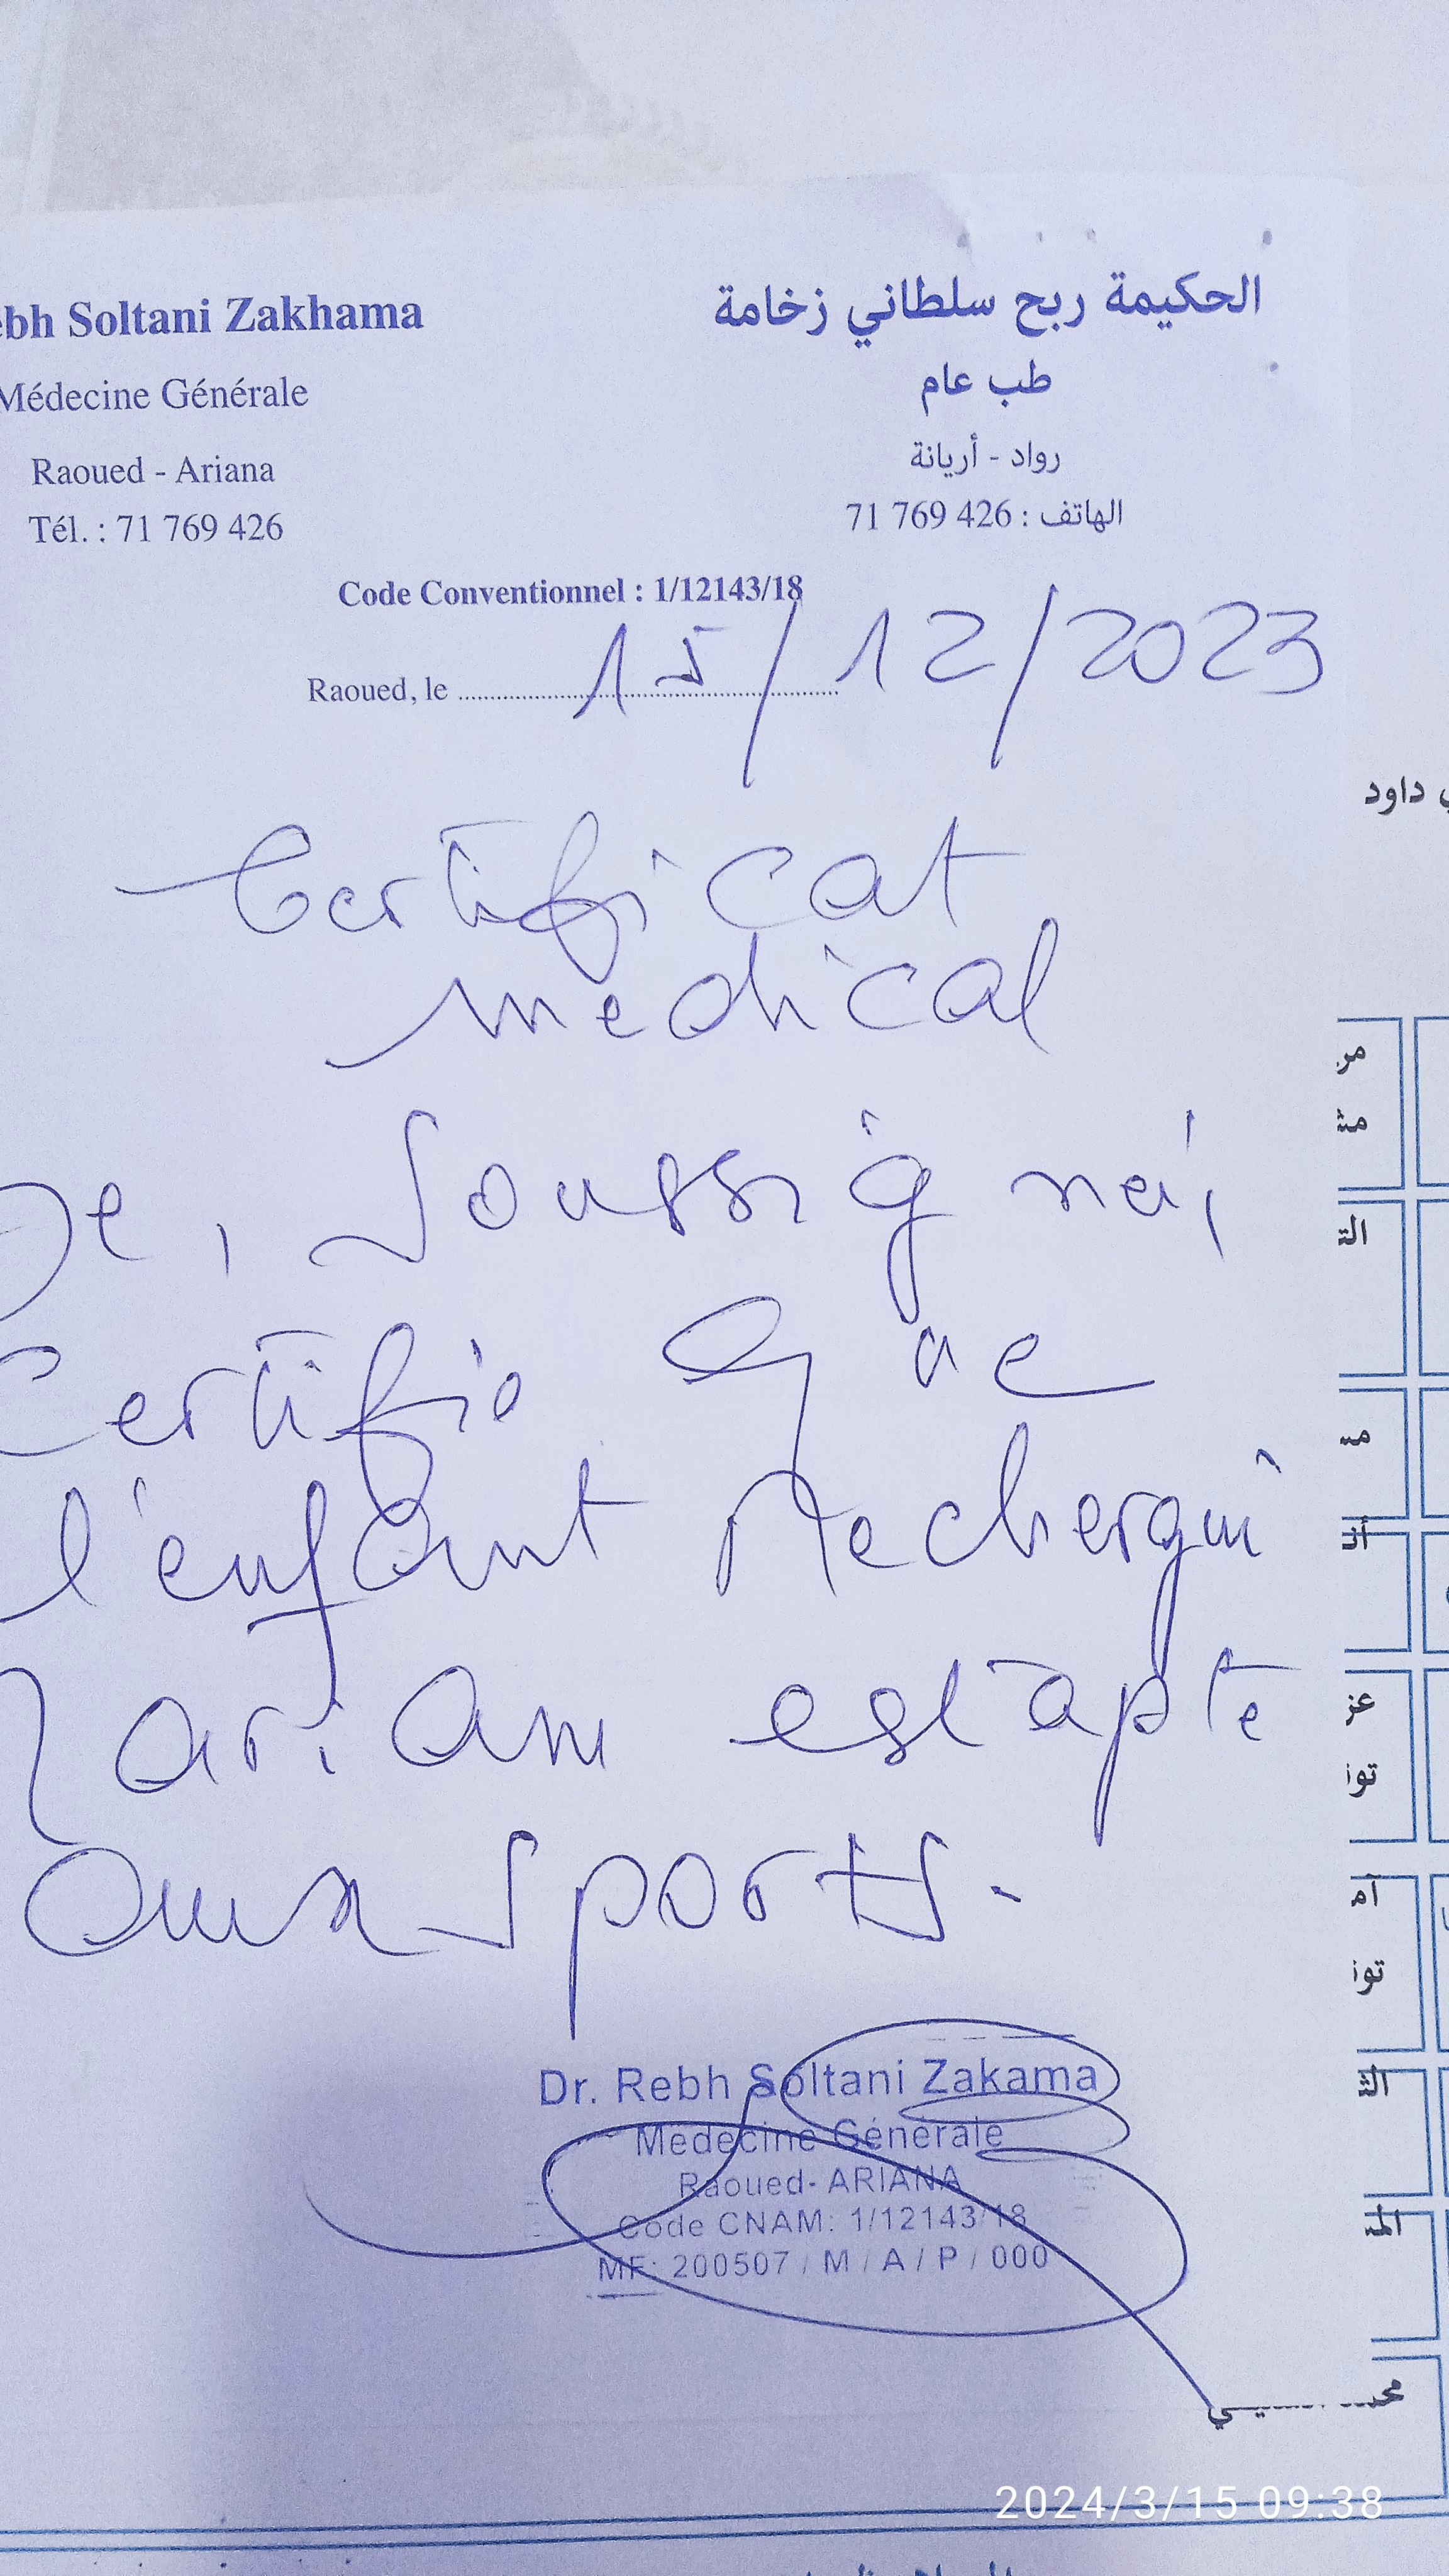 ebh Soltani Zakhama
Médecine Générale
Raoued - Ariana
Tél. : 71 769 426
الحكيمة ربح سلطاني زخامة
طب عام
رواد - أريانة
الهاتف : 426 769 71
Code Conventionnel : 1/12143/18
Raoued, le 15/12/2023
Certificat
medical
Je, Soussigné,
Certifie que
l'enfant Mechergui
est apte
aux sports.
Dr. Rebh Soltani Zakama
Médecine Générale
Raoued- ARIANA
Code CNAM: 1/12143/18
MF: 200507 / M / A / P / 000
داود
2024/3/15 09:38